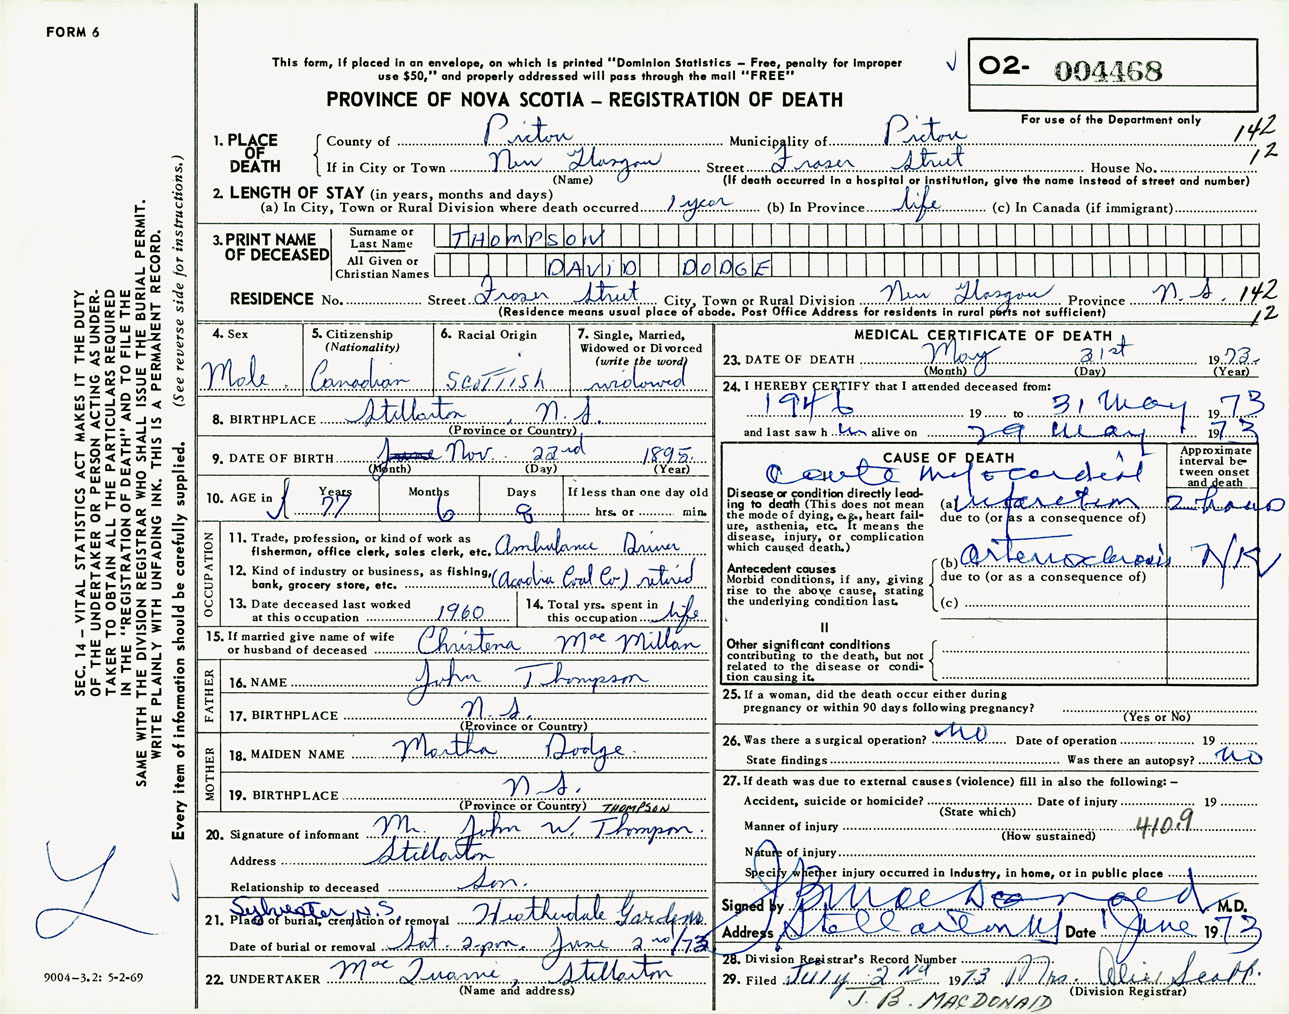 FORM 6
This form, if placed in an envelope, on which is printed "Dominion Statistics – Free, penalty for improper
use $50," and properly addressed will pass through the mail "FREE"
PROVINCE OF NOVA SCOTIA – REGISTRATION OF DEATH
O2- 004468
For use of the Department only
142
12
1. PLACE OF DEATH
County of Pictou Municipality of Pictou
If in City or Town New Glasgow Street Fraser Street House No.
(Name) (If death occurred in a hospital or institution, give the name instead of street and number)
2. LENGTH OF STAY (in years, months and days)
(a) In City, Town or Rural Division where death occurred 1 year (b) In Province life (c) In Canada (if immigrant)
3. PRINT NAME OF DECEASED
Surname or Last Name THOMPSON
All Given or Christian Names DAVID DODGE
RESIDENCE No. Street Fraser Street City, Town or Rural Division New Glasgow Province N.S. 142
(Residence means usual place of abode. Post Office Address for residents in rural parts not sufficient) 12
4. Sex
Male.
5. Citizenship
(Nationality)
Canadian
6. Racial Origin
SCOTTISH
7. Single, Married,
Widowed or Divorced
(write the word)
widowed
8. BIRTHPLACE Stellarton, N.S.
(Province or Country)
9. DATE OF BIRTH June Nov. 23rd 1895
(Month) (Day) (Year)
10. AGE in Years Months Days If less than one day old
77 6 8 hrs. or min.
OCCUPATION
11. Trade, profession, or kind of work as
fisherman, office clerk, sales clerk, etc. Ambulance Driver
12. Kind of industry or business, as fishing,
bank, grocery store, etc. (Acadia Coal Co) retired
13. Date deceased last worked
at this occupation 1960
14. Total yrs. spent in
this occupation life
15. If married give name of wife
or husband of deceased Christena MacMillan
FATHER
16. NAME John Thompson
17. BIRTHPLACE N.S.
(Province or Country)
MOTHER
18. MAIDEN NAME Martha Dodge.
19. BIRTHPLACE N.S.
(Province or Country) THOMPSON
20. Signature of informant Mr. John W. Thompson.
Address Stellarton
Relationship to deceased Son.
Sylvester N.S
21. Place of burial, cremation or removal Heatherdale Gardens
Date of burial or removal Sat 2 p.m. June 2nd/73
22. UNDERTAKER Stellarton
(Name and address)
MEDICAL CERTIFICATE OF DEATH
23. DATE OF DEATH May 31st 1973.
(Month) (Day) (Year)
24. I HEREBY CERTIFY that I attended deceased from:
1946 19 to 31 May 1973
and last saw him alive on 29 May 1973
CAUSE OF DEATH
Approximate interval between onset and death
Disease or condition directly leading to death (This does not mean the mode of dying, e.g., heart failure, asthenia, etc. It means the disease, injury, or complication which caused death.)
acute myocardial
(a) infarction 2 hours
due to (or as a consequence of)
Antecedent causes
Morbid conditions, if any, giving rise to the above cause, stating the underlying condition last.
(b) arteriosclerosis N/K
due to (or as a consequence of)
(c)
II
Other significant conditions
contributing to the death, but not related to the disease or condition causing it.
25. If a woman, did the death occur either during
pregnancy or within 90 days following pregnancy?
(Yes or No)
26. Was there a surgical operation? no Date of operation 19
State findings Was there an autopsy? no
27. If death was due to external causes (violence) fill in also the following: –
Accident, suicide or homicide? Date of injury 19
(State which)
Manner of injury 4109
(How sustained)
Nature of injury
Specify whether injury occurred in industry, in home, or in public place
Signed by J B MacDonald M.D.
Address Stellarton NS Date 1 June 1973
28. Division Registrar's Record Number
29. Filed July 2nd 1973 Mrs. Scott.
(Division Registrar)
J. B. MACDONALD
SEC. 14 – VITAL STATISTICS ACT MAKES IT THE DUTY
OF THE UNDERTAKER OR PERSON ACTING AS UNDER-
TAKER TO OBTAIN ALL THE PARTICULARS REQUIRED
IN THE "REGISTRATION OF DEATH" AND TO FILE THE
SAME WITH THE DIVISION REGISTRAR WHO SHALL ISSUE THE BURIAL PERMIT.
WRITE PLAINLY WITH UNFADING INK. THIS IS A PERMANENT RECORD.
Every item of information should be carefully supplied. (See reverse side for instructions.)
9004–3.2: 5-2-69